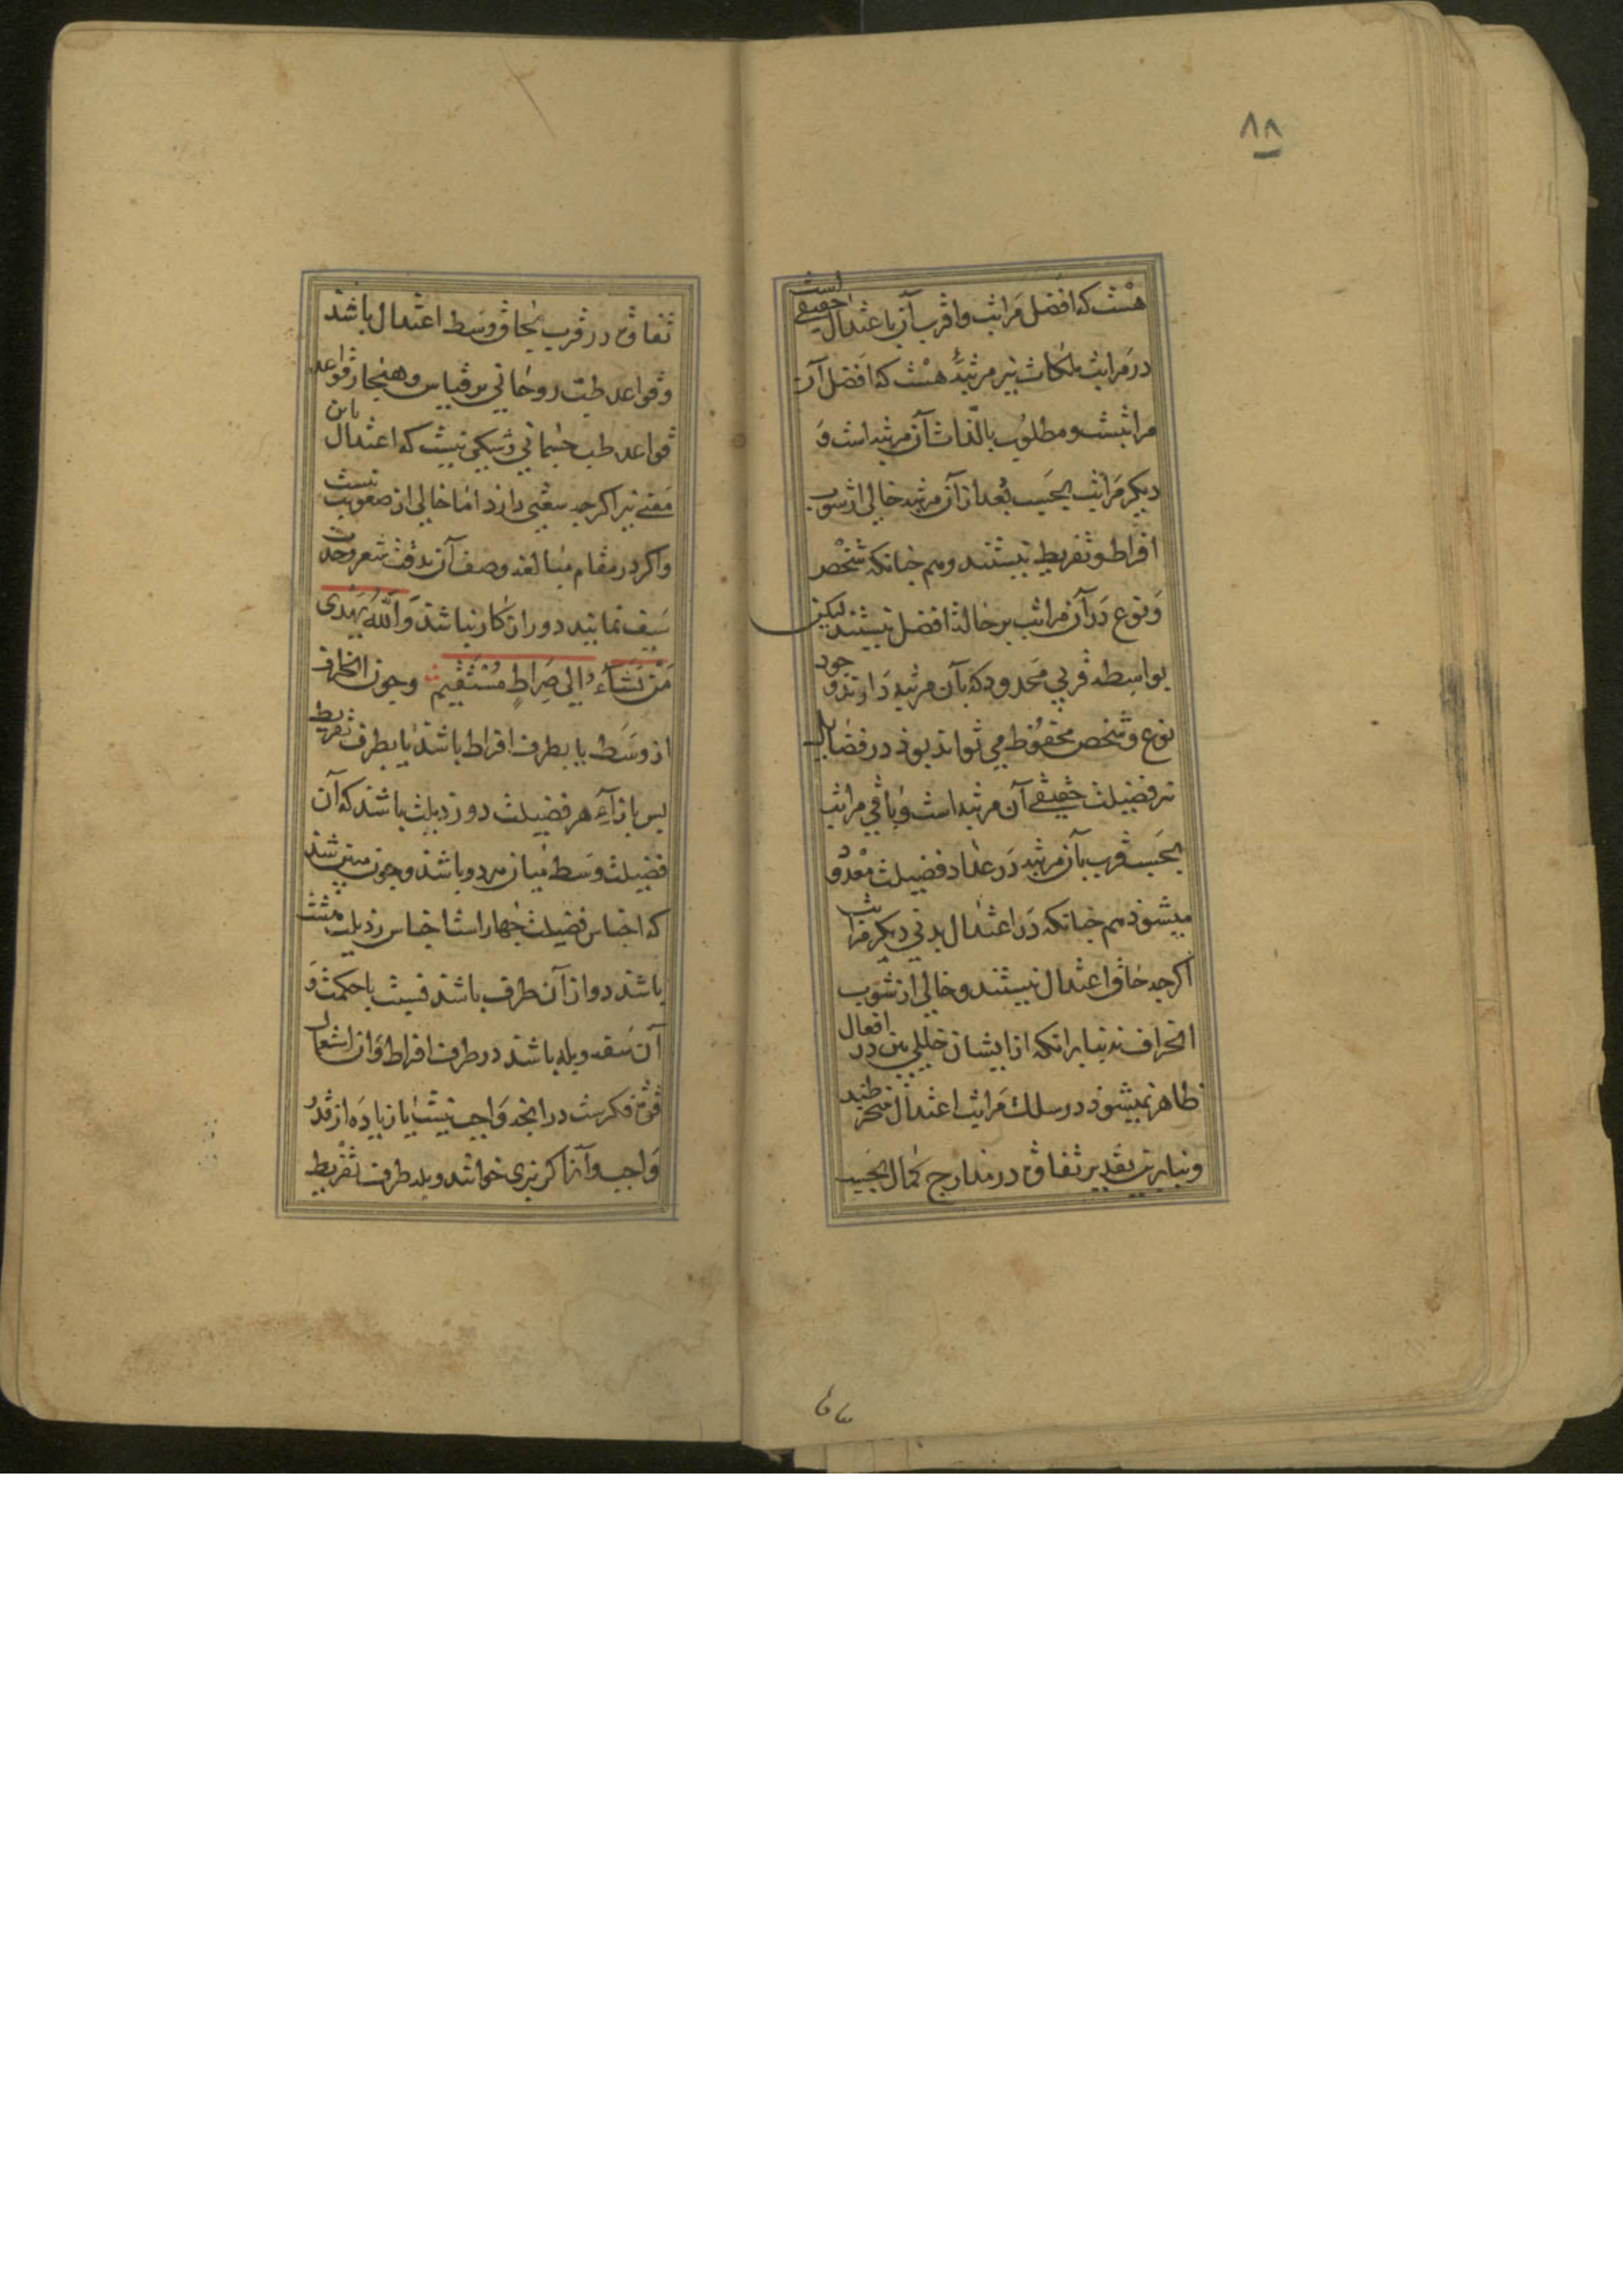 ۸۸
هست که افضل مراتب و اقرب آن باعتدال حقیقی است
در مراتب ملکات نیز مرتبهٔ هست که افضل آن
مراتبست و مطلوب بالذات آن مرتبه است و
دیگر مراتب بحسب بعد از آن مرتبه خالی از شوب
افراط و تفریط نیستند و هم چنانکه شخص
و نوع در آن مراتب بر حالة افضل نیستند لیکن
بواسطه قربی محدود که بآن مرتبه دارند وجود
نوع و شخص محفوظ می تواند بوذ در فضایل
نیز فضیلت حقیقی آن مرتبه است و باقی مراتب
بحسب قرب بآن مرتبه در عداد فضیلت معدود
میشوذ هم چنانکه در اعتدال بدنی دیگر مراتب
اگرچه حاق اعتدال نیستند و خالی از شوب
انحراف نه بنابرانکه از ایشان خللی بین در افعال
ظاهر نمیشوذ در سلک مراتب اعتدال منخرطند
و بنابرین تقدیر تفاوت در مدارج کمال بحسب
تفاوت در قرب بحاق وسط اعتدال باشد
و قواعد طب روحانی بر قیاس و هنجار قواعد
قواعد طب جسمانی و شکی نیست که اعتدال باین
معنی نیز اگرچه سعتی دارد اما خالی از صعوبت نیست
و اگر در مقام مبالغه وصف آن بدقت شعر و حدت
سیف نمایند دور از کار نباشد وَاللّٰهُ یَهْدی
مَنْ یَشَآءُ اِلی صِراطٍ مُسْتَقیمٍ و چون انحراف
از وسط یا بطرف افراط باشد یا بطرف تفریط
پس بازآء هر فضیلت دو رذیلت باشد که آن
فضیلت وسط میان هر دو باشد و چون مبین شد
که اجناس فضیلت چهار است اجناس رذیلت هشت
باشد دو از آن طرف باشد نسبت با حکمت و
آن سفه و بله باشد در طرف افراط و آن استعمال
قوة فکرست در انچه واجب نیست یا زیاده از قدر
واجب و آنرا گربزی خوانند و بله طرف تفریط